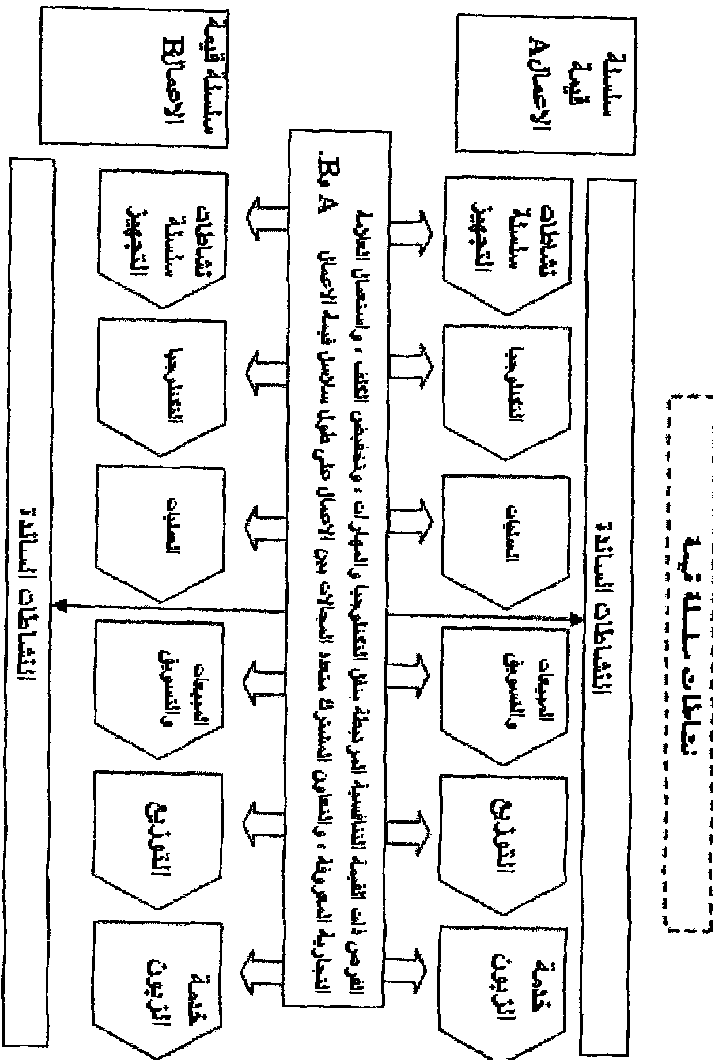 نشاطات سلسلة قيمة
سلسلة
قيمة
الاعمال A
النشاطات الساندة
نشاطات
سلسلة
التجهيز
التكنولوجيا
العمليات
المبيعات
والتسويق
التوزيع
خدمة
الزبون
الفرص ذات القيمة التنافسية المرتبطة بنقل التكنولوجيا والمهارات ، وتخفيض الكلف ، واستعمال العلامة
التجارية المعروفة ، والتعاون المشترك متعدد المجالات بين الاعمال على طول سلاسل قيمة الاعمال A وB.
سلسلة قيمة
الاعمال B
نشاطات
سلسلة
التجهيز
التكنولوجيا
العمليات
المبيعات
والتسويق
التوزيع
خدمة
الزبون
النشاطات الساندة